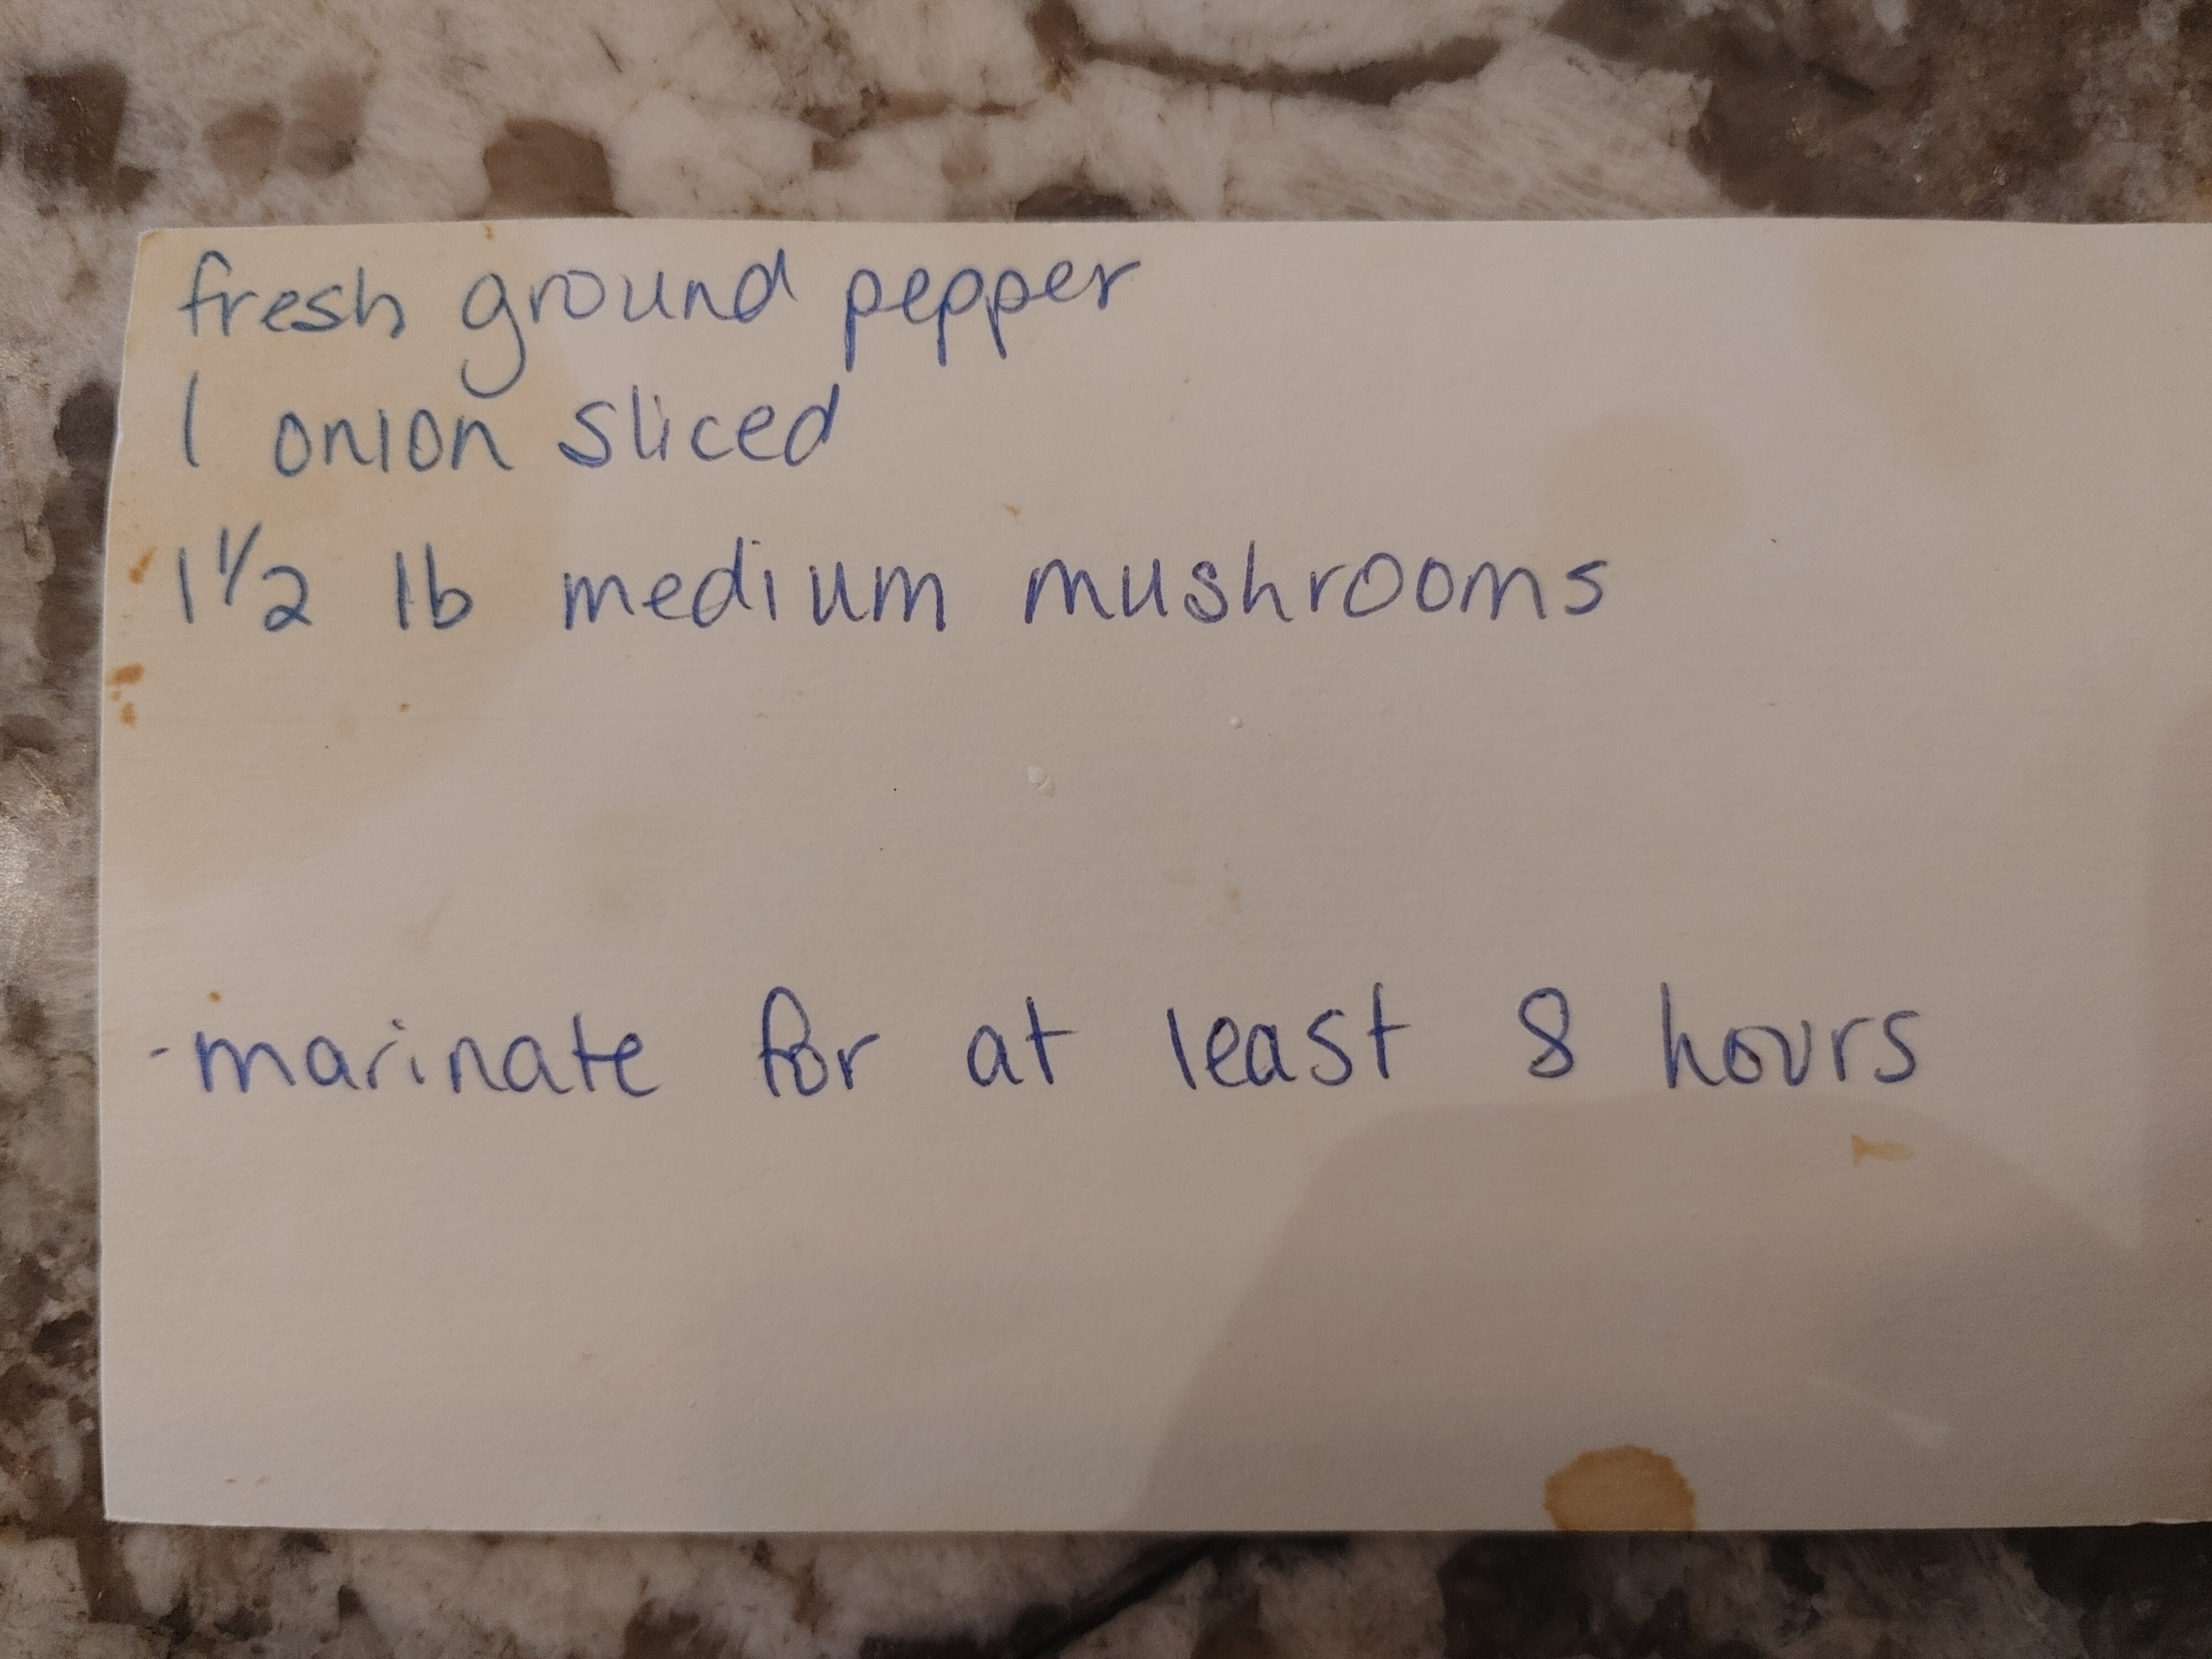 fresh ground pepper
1 onion sliced
1 1/2 lb medium mushrooms
-marinate for at least 8 hours